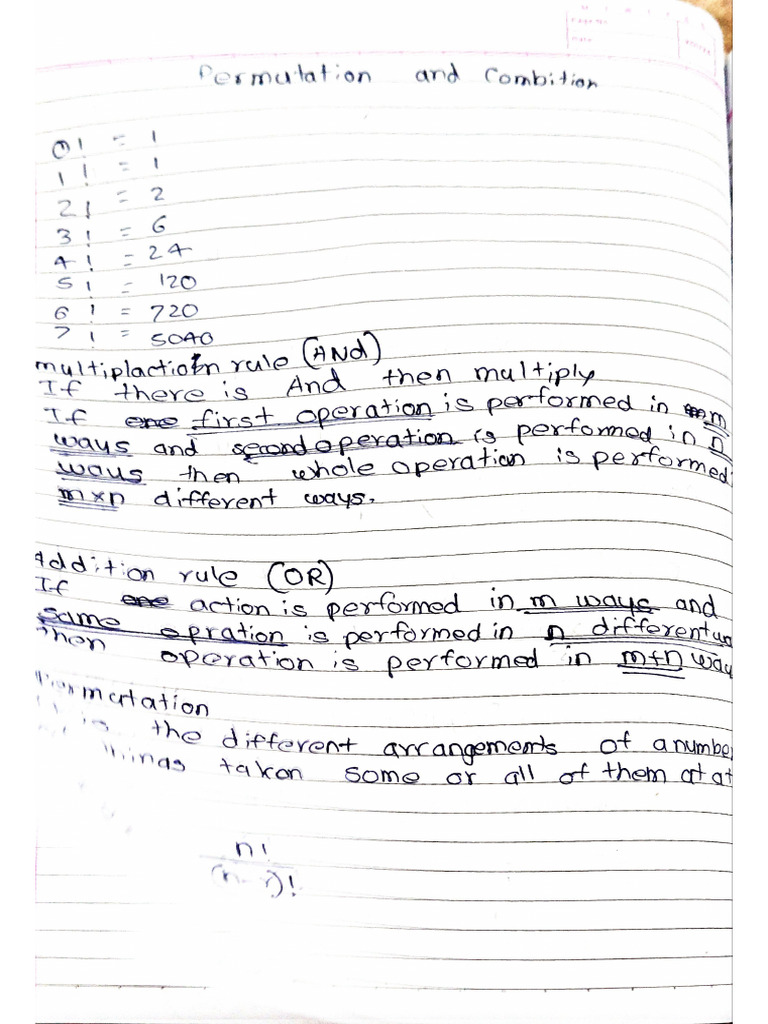 Permutation and Combition
0! = 1
1! = 1
2! = 2
3! = 6
4! = 24
5! = 120
6! = 720
7! = 5040
multiplaction rule (AND)
If there is And then multiply
If one first operation is performed in m
ways and second operation is performed in n
ways then whole operation is performed
m×n different ways.
Addition rule (OR)
If one action is performed in m ways and
same opration is performed in n different
then operation is performed in m+n way
Permutation
is the different arrangements of a number
things taken some or all of them at at
n!
(n-r)!